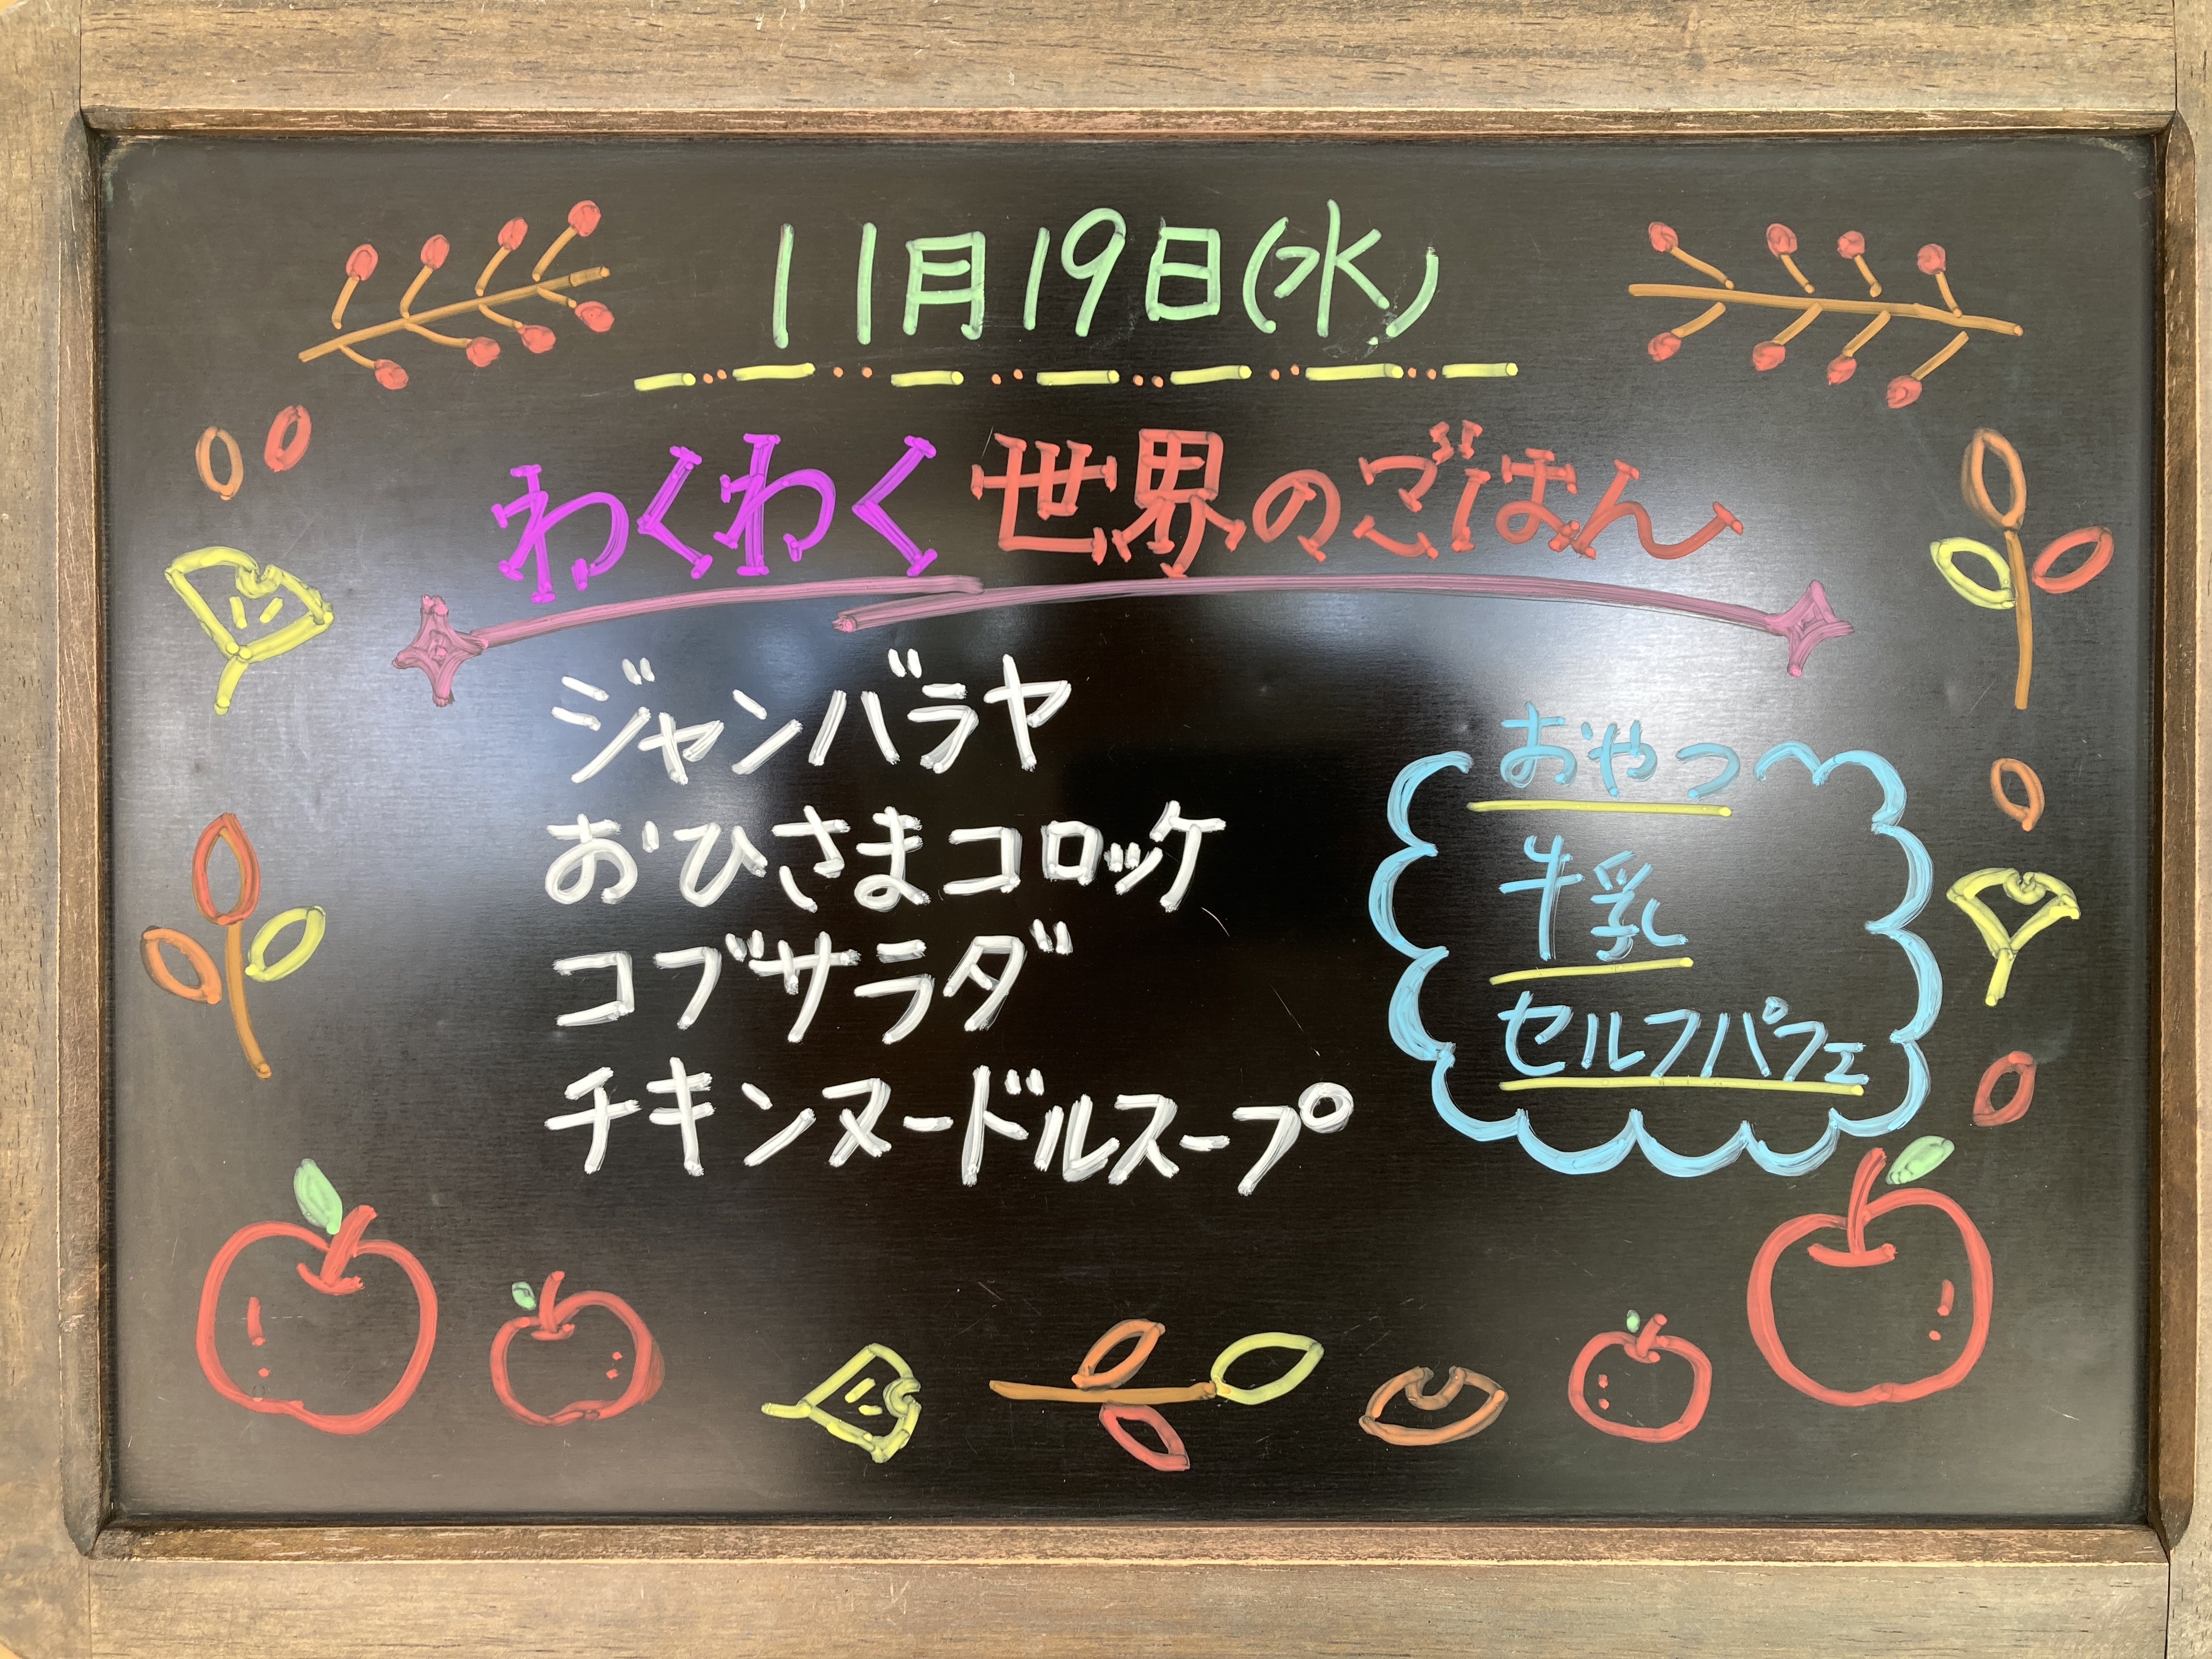 11月19日(水)
わくわく世界のごはん
ジャンバラヤ
おひさまコロッケ
コブサラダ
チキンヌードルスープ
おやつ
牛乳
セルフパフェ